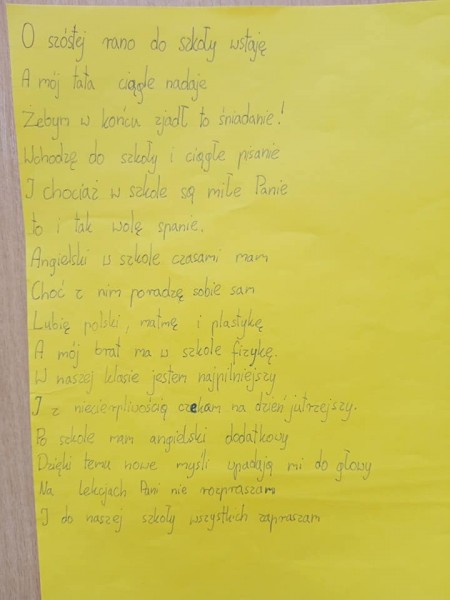 O szóstej rano do szkoły wstaję
A mój tata ciągle nadaje
Żebym w końcu zjadł to śniadanie!
Wchodzę do szkoły i ciągle pisanie
I chociaż w szkole są miłe Panie
to i tak wolę spanie.
Angielski w szkole czasami mam
Choć z nim poradzę sobie sam
Lubię polski, matmę i plastykę
A mój brat ma w szkole fizykę.
W naszej klasie jestem najpilniejszy
I z niecierpliwością czekam na dzień jutrzejszy.
Po szkole mam angielski dodatkowy
Dzięki temu nowe myśli wpadają mi do głowy
Na lekcjach Pani nie rozpraszam
I do naszej szkoły wszystkich zapraszam